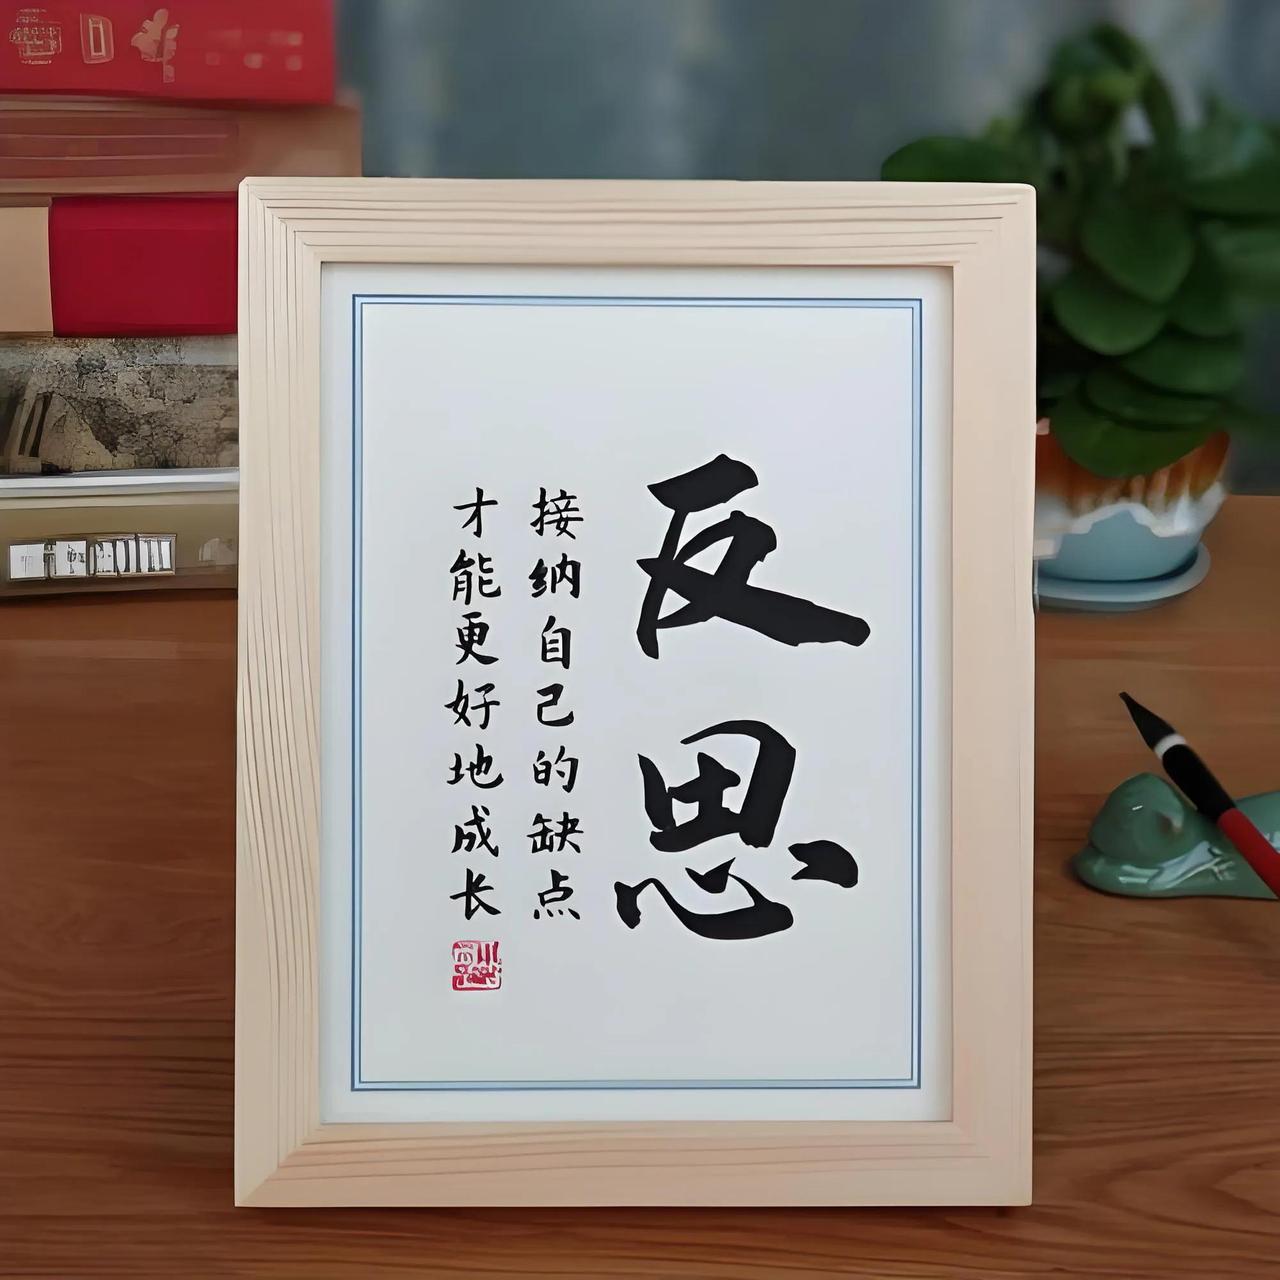 反思
接纳自己的缺点
才能更好地成长